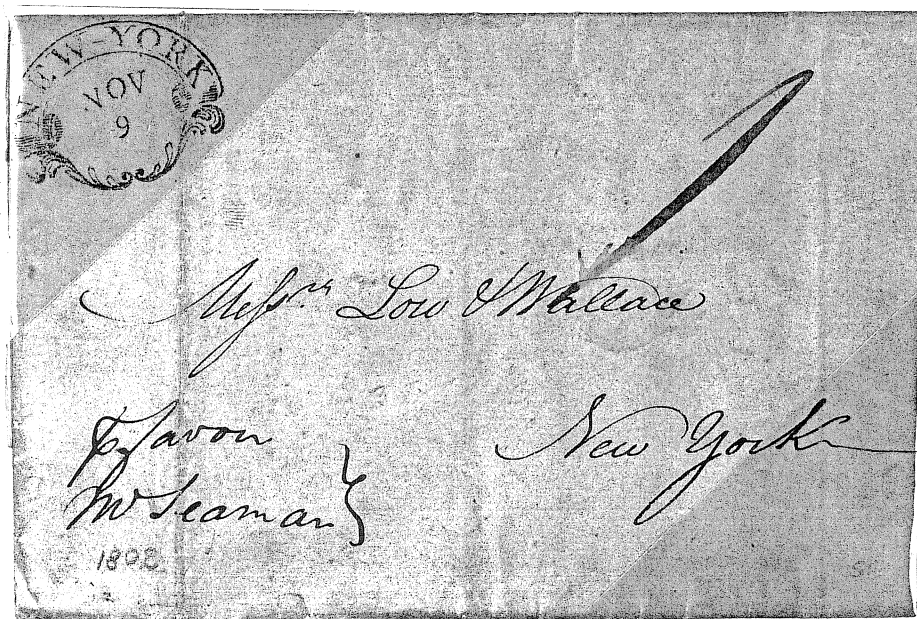 NEW-YORK
NOV
9
Messrs Low & Wallace
New York
℘ favour
Mr Seaman }
1808